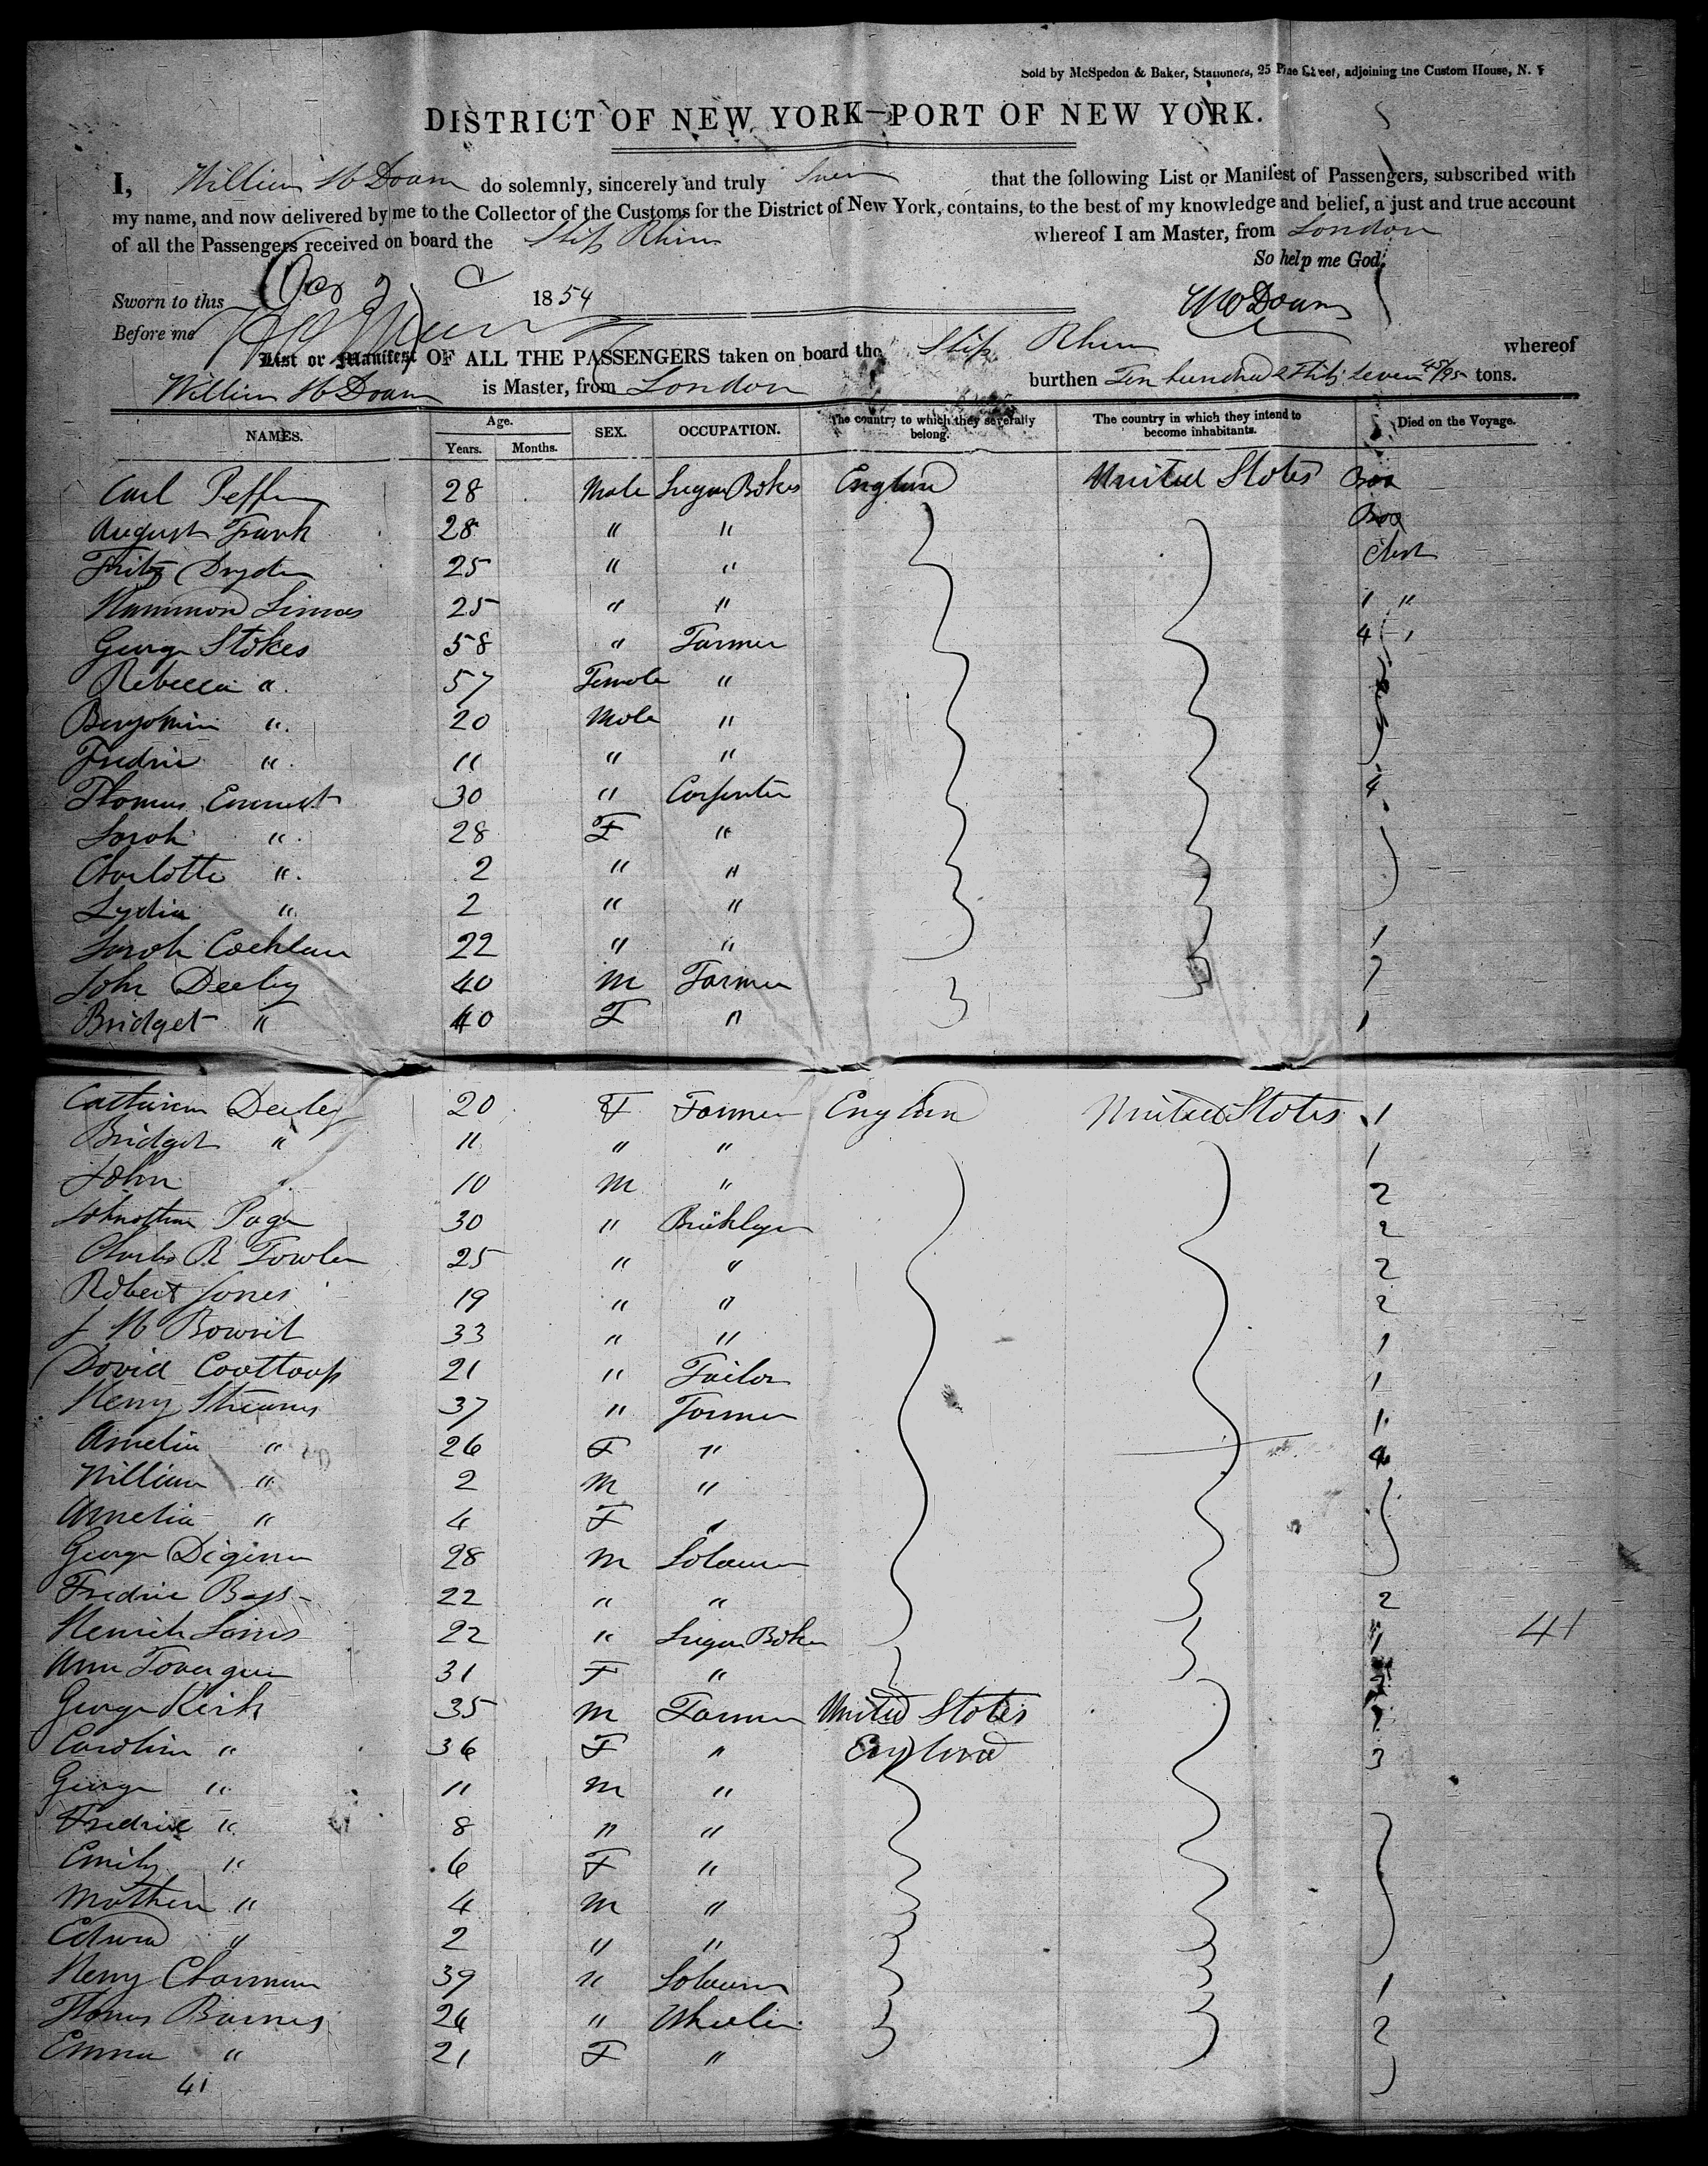 Sold by McSpedon & Baker, Stationers, 25 Pine Street, adjoining the Custom House, N. Y
DISTRICT OF NEW YORK—PORT OF NEW YORK.
I, William H Doane do solemnly, sincerely and truly that the following List or Manifest of Passengers, subscribed with
my name, and now delivered by me to the Collector of the Customs for the District of New York, contains, to the best of my knowledge and belief, a just and true account
of all the Passengers received on board the Ship Rhine whereof I am Master, from London
So help me God.
Sworn to this 1854
Before me
List or Manifest OF ALL THE PASSENGERS taken on board the Ship Rhine whereof
William H Doane is Master, from London burthen Ten hundred & thirty seven 45/95 tons.
NAMES. Age. SEX. OCCUPATION. The country to which they severally belong. The country in which they intend to become inhabitants. Died on the Voyage.
Years. Months.
Carl 28 Male Sugar Baker England United States Box
August Frank 28 " " Box
Fritz Dryden 25 " " Chest
25 " " 1 "
George Stokes 58 " Farmer 4
Rebecca " 57 Female "
Benjamin " 20 Male "
Fredric " 11 " "
Thomas Emmest 30 " Carpenter 4
Sarah " 28 F "
Charlotte " 2 " "
Lydia " 2 " "
Sarah Cochlan 22 " " 1
John Deeley 40 M Farmer
Bridget " 40 F " 1
Catherine Deeley 20 F Farmer England United States 1
Bridget " 11 " " 1
John " 10 M " 2
Johnathan Page 30 " Bricklayer 2
Charles R Fowler 25 " " 2
Robert Jones 19 " " 2
J H 33 " " 1
David 21 " Tailor 1
Henry Stearns 37 " Farmer 1
Amelia " 26 F " 4
William " 2 M "
Amelia " 4 F "
George 28 M
Fredric 22 " " 2
22 " Sugar Baker 1
Ann 31 F "
George Kirk 35 M Farmer United States
Caroline " 36 F " England 3
George " 11 M "
Fredrick " 8 " "
Emily " 6 F "
Mathew " 4 M "
Edward " 2 " "
Henry Charman 39 " 1
Thomas Barnes 24 " 2
Emma " 21 F "
41
41